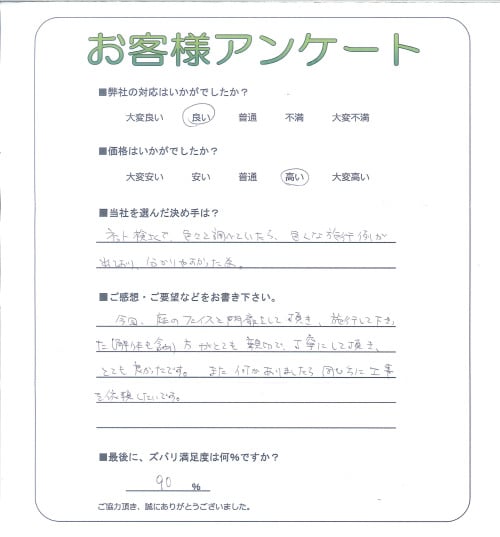 お客様アンケート
■弊社の対応はいかがでしたか？
大変良い 良い 普通 不満 大変不満
■価格はいかがでしたか？
大変安い 安い 普通 高い 大変高い
■当社を選んだ決め手は？
ネット検索で、色々と調べていたら、色々な施行例が
出ており、分かりやすかった為。
■ご感想・ご要望などをお書き下さい。
今回、庭のフェイスと門扉をして頂き、施行して下さ
た(解体も含め)方がとても親切で、丁寧にして頂き、
とても良かったです。また何かありましたら同じように工事
を依頼したいです。
■最後に、ズバリ満足度は何%ですか？
90 %
ご協力頂き、誠にありがとうございました。